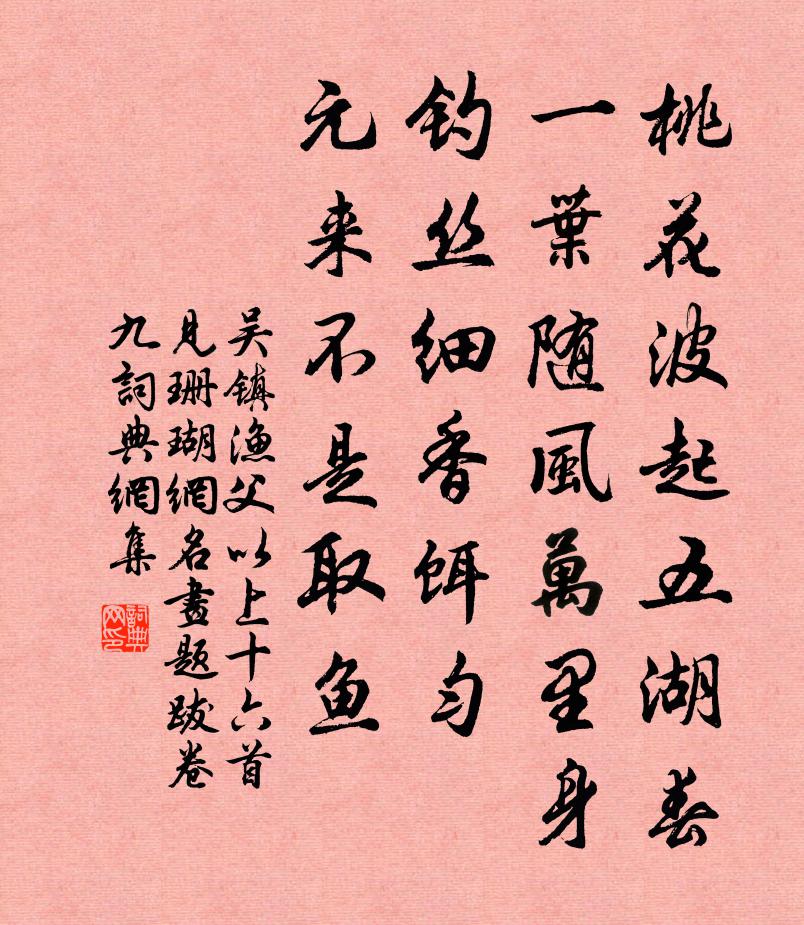 桃花波起五湖春
一葉随風萬里身
钓丝细香饵匀
元来不是取鱼
吴镇渔父以上十六首
見珊瑚網名畫题跋卷
九詞典網集
詞典网印